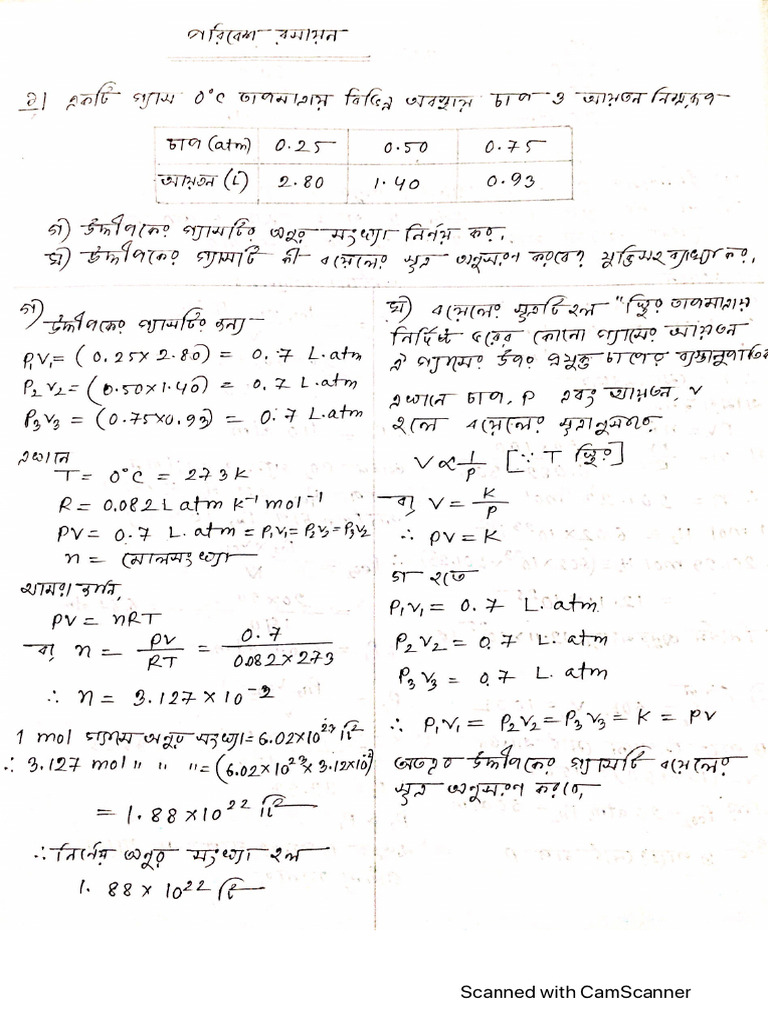 পরিবেশ রসায়ন
১। একটি গ্যাস 0°C তাপমাত্রায় বিভিন্ন অবস্থায় চাপ ও আয়তন নিম্নরূপ
চাপ (atm) 0.25 0.50 0.75
আয়তন (L) 2.80 1.40 0.93
গ) উদ্দীপকের গ্যাসটির অনুর সংখ্যা নির্নয় কর।
ঘ) উদ্দীপকের গ্যাসটি কী বয়েলের সূত্র অনুসরণ করবে? যুক্তিসহ ব্যাখ্যা কর।
গ)
উদ্দীপকের গ্যাসটির জন্য
P₁V₁ = (0.25×2.80) = 0.7 L.atm
P₂V₂ = (0.50×1.40) = 0.7 L.atm
P₃V₃ = (0.75×0.93) = 0.7 L.atm
এখানে
T = 0°C = 273 K
R = 0.082 L atm K⁻¹ mol⁻¹
PV = 0.7 L.atm = P₁V₁ = P₂V₂ = P₃V₂
n = মোলসংখ্যা
আমরা জানি,
PV = nRT
বা, n = PV/RT = 0.7/0.082×273
∴ n = 3.127 × 10⁻²
1 mol গ্যাসে অনুর সংখ্যা = 6.02×10²³ টি
∴ 3.127 mol " " " = (6.02×10²³ × 3.12×10⁻²)
= 1.88×10²² টি
∴ নির্নেয় অনুর সংখ্যা হল
1.88 × 10²² টি
ঘ) বয়েলের সূত্রটি হল "স্থির তাপমাত্রায়
নির্দিষ্ট ভরের কোনো গ্যাসের আয়তন
ঐ গ্যাসের উপর প্রযুক্ত চাপের ব্যস্তানুপাতিক
এখানে চাপ, P এবং আয়তন, V
হলে বয়েলের সূত্রানুসারে
V ∝ 1/P [∵ T স্থির]
বা, V = K/P
∴ PV = K
গ হতে
P₁V₁ = 0.7 L.atm
P₂V₂ = 0.7 L.atm
P₃V₃ = 0.7 L.atm
∴ P₁V₁ = P₂V₂ = P₃V₃ = K = PV
অতএব উদ্দীপকের গ্যাসটি বয়েলের
সূত্র অনুসরণ করবে।
Scanned with CamScanner